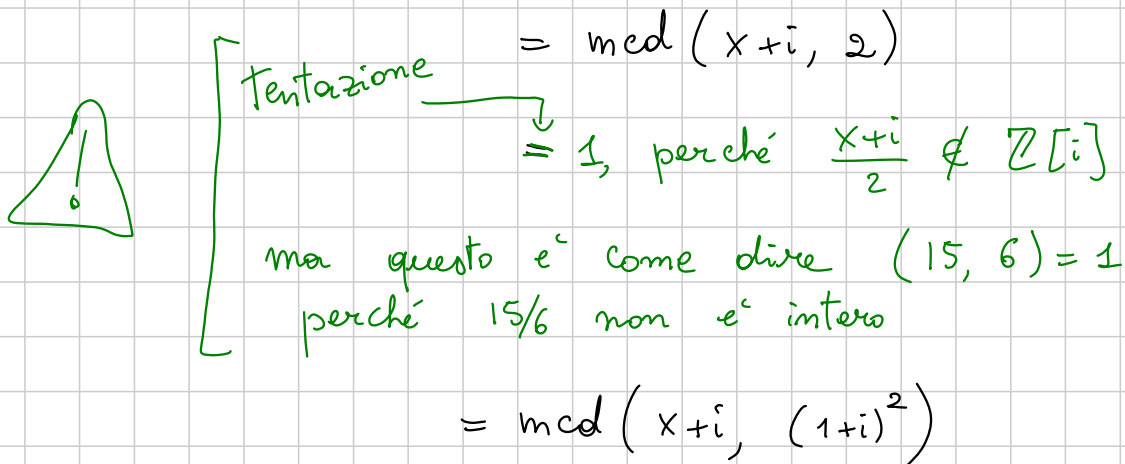 = mcd (x+i, 2)
Tentazione
= 1, perché \frac{x+i}{2} ∉ ℤ[i]
ma questo è come dire (15, 6) = 1
perché 15/6 non è intero
= mcd (x+i, (1+i)²)